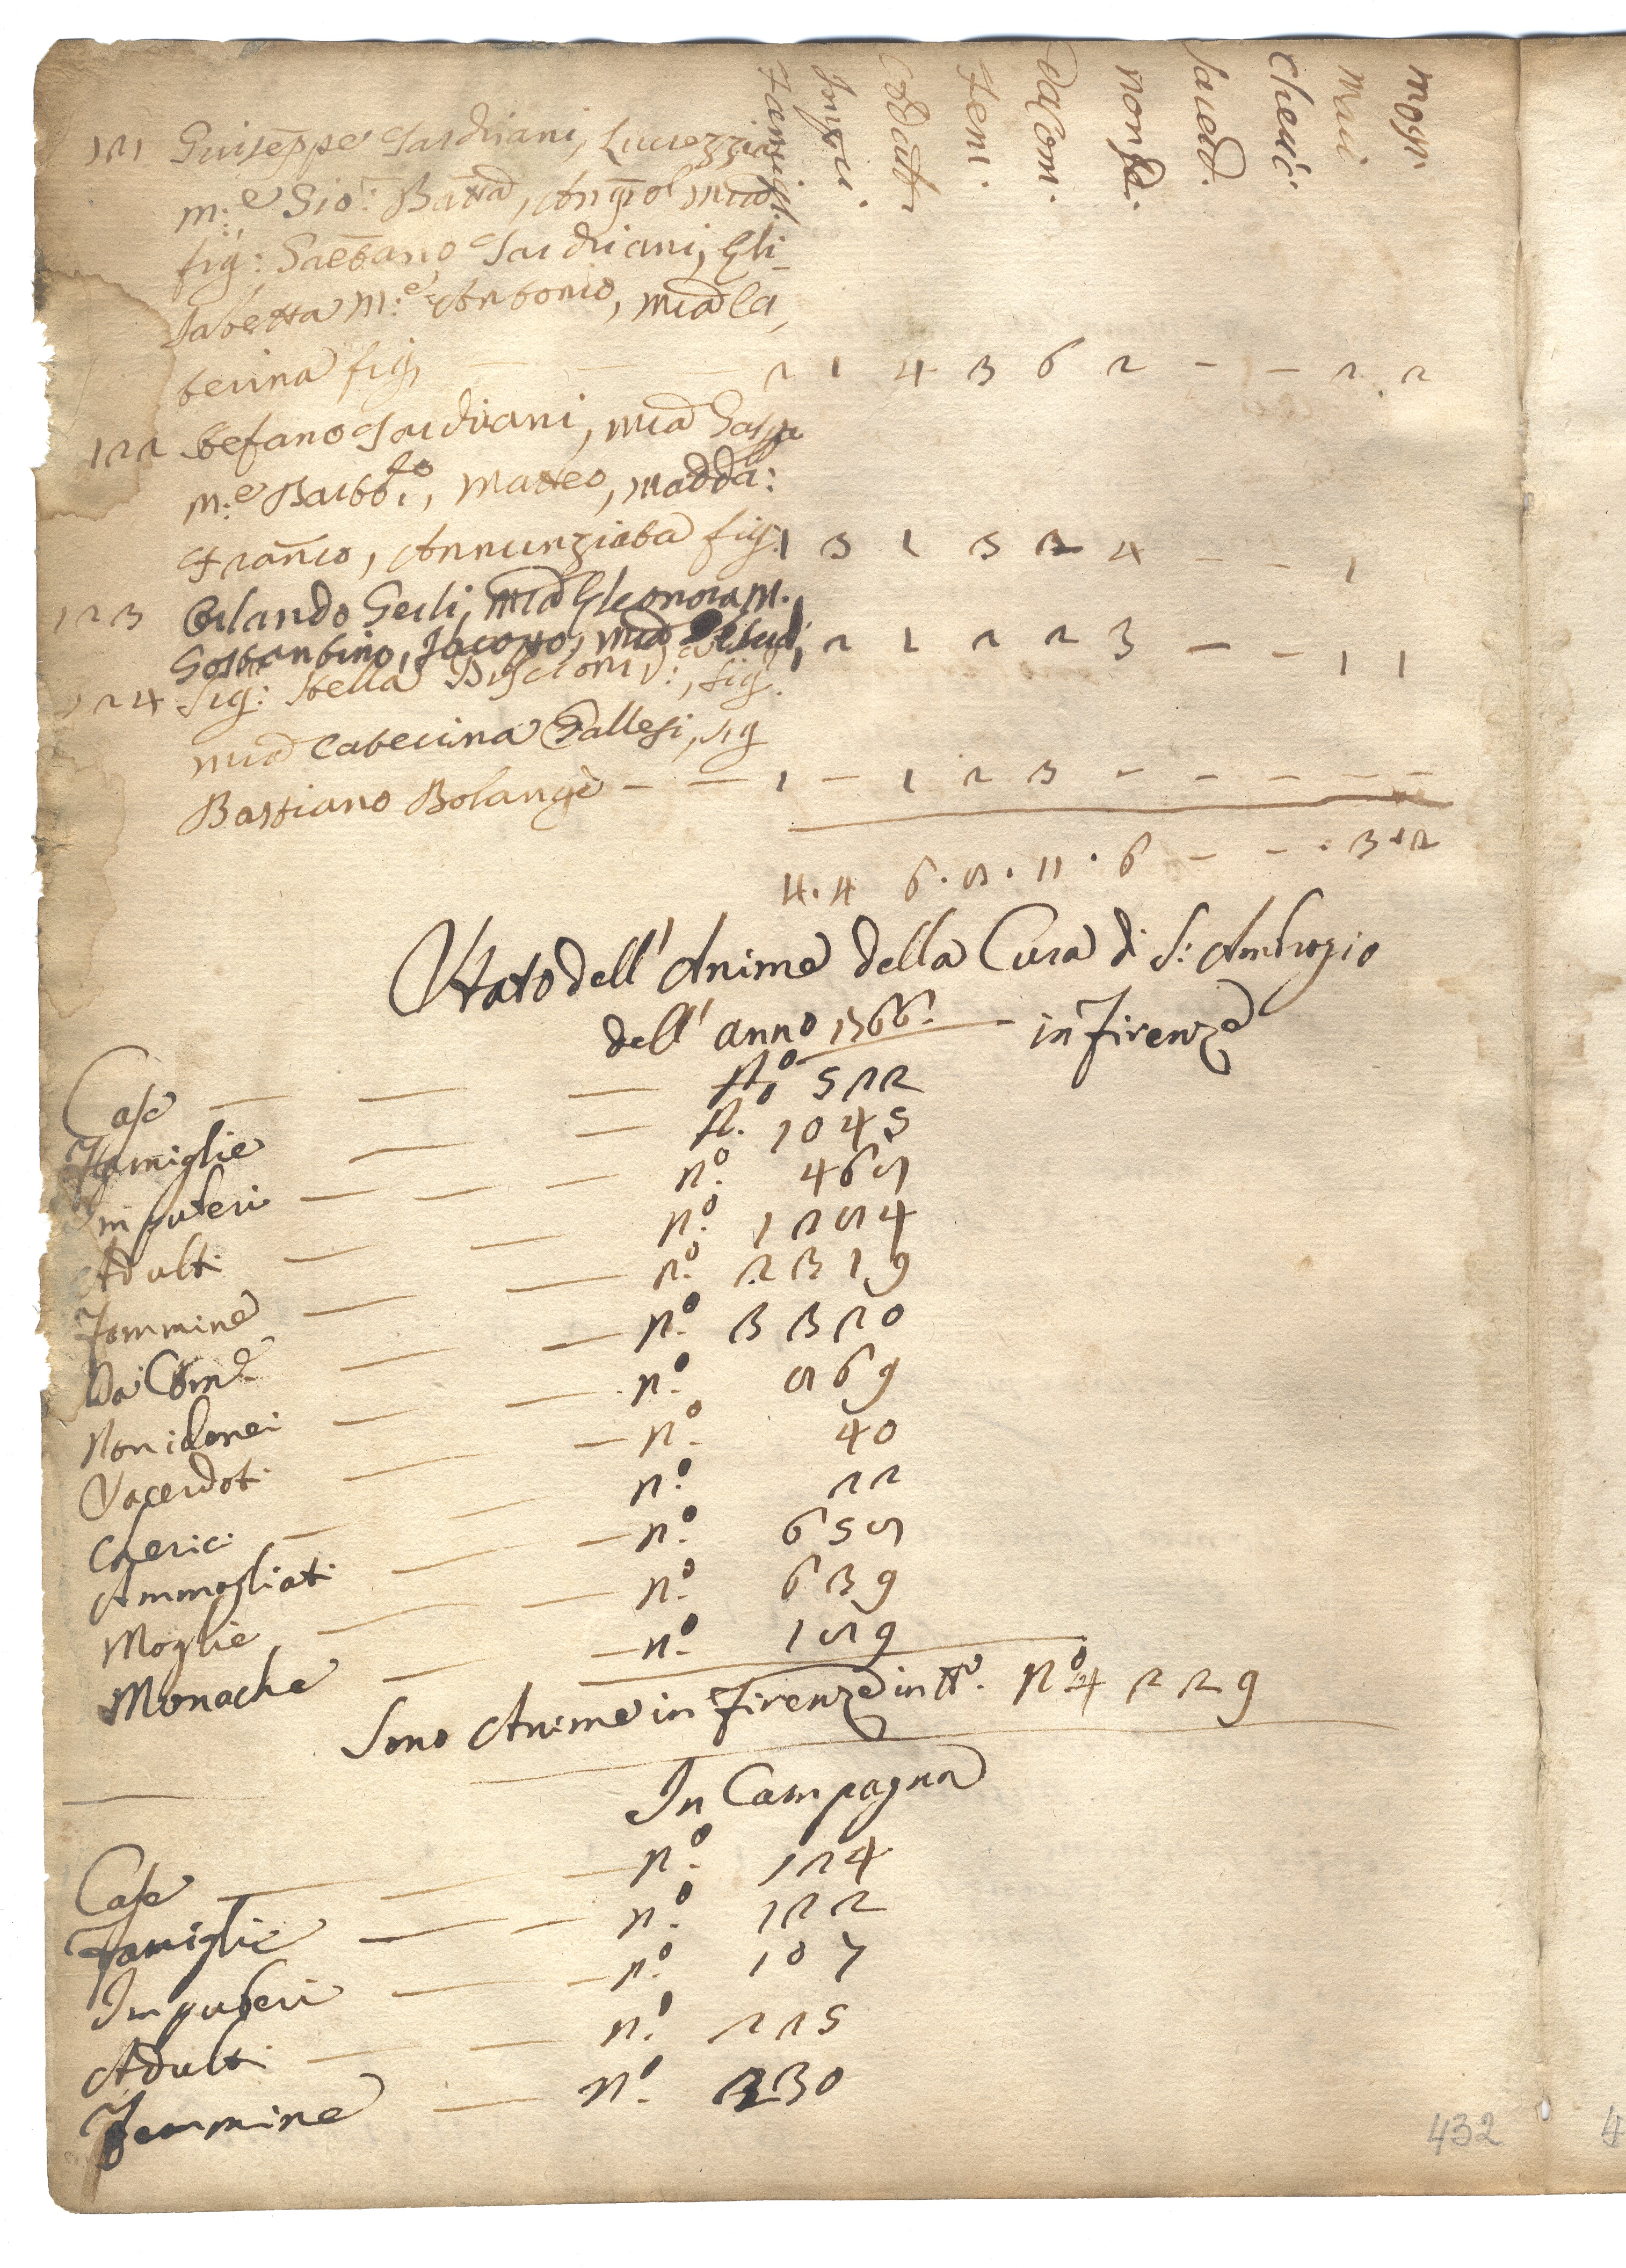 Famigl. Impu. Adulti Femi. Da Com. non id. Sacerd. Cheric. Mari Mogl.
121 Giuseppe Tardriani, Lucrezzia
m:e Gio: Batta, Angiol Mia
fig: Gaetano Tardriani, Eli-
sabetta m:e Antonio, Mia Ca,
terina fig, — — 2 1 4 3 6 2 - - 2 2
122 Stefano Tardriani, Mia
m:e Matteo, Madda:
Franco, Annunziata fig: 1 3 1 3 2 4 - - 1
123 Orlando Gerli, Mia Eleonora m.
Gostantino, Jacopo, Mia 1 2 1 2 2 3 - - 1 1
124 Sig: Stella, Sig
Mia Caterina Gallesi, Sig
Bastiano Bolangè - - 1 - 1 2 3 - - - - -
4.4 6.8.11.6 - - . 3.2
Stato dell' Anime della Cura di S: Ambrogio
dell' anno 1366. — in Firenze
Case — — — No 522
Famiglie — — N. 1045
Impuberi — — — no. 468
Adulti — — no. 1284
Femmine — — no. 2319
Da Com.e — — no. 3320
Non idonei — — no. 869
Sacerdoti — — no. 40
Cherici — — no. 22
Ammogliati — — no. 658
Moglie — — no. 639
Monache — — no. 189
Sono Anime in Firenze in tto. No. 4229
In Campagna
Case — — — no. 124
Famiglie — — no. 122
Impuberi — — no. 107
Adulti — — no. 225
Femmine — no. 230
432